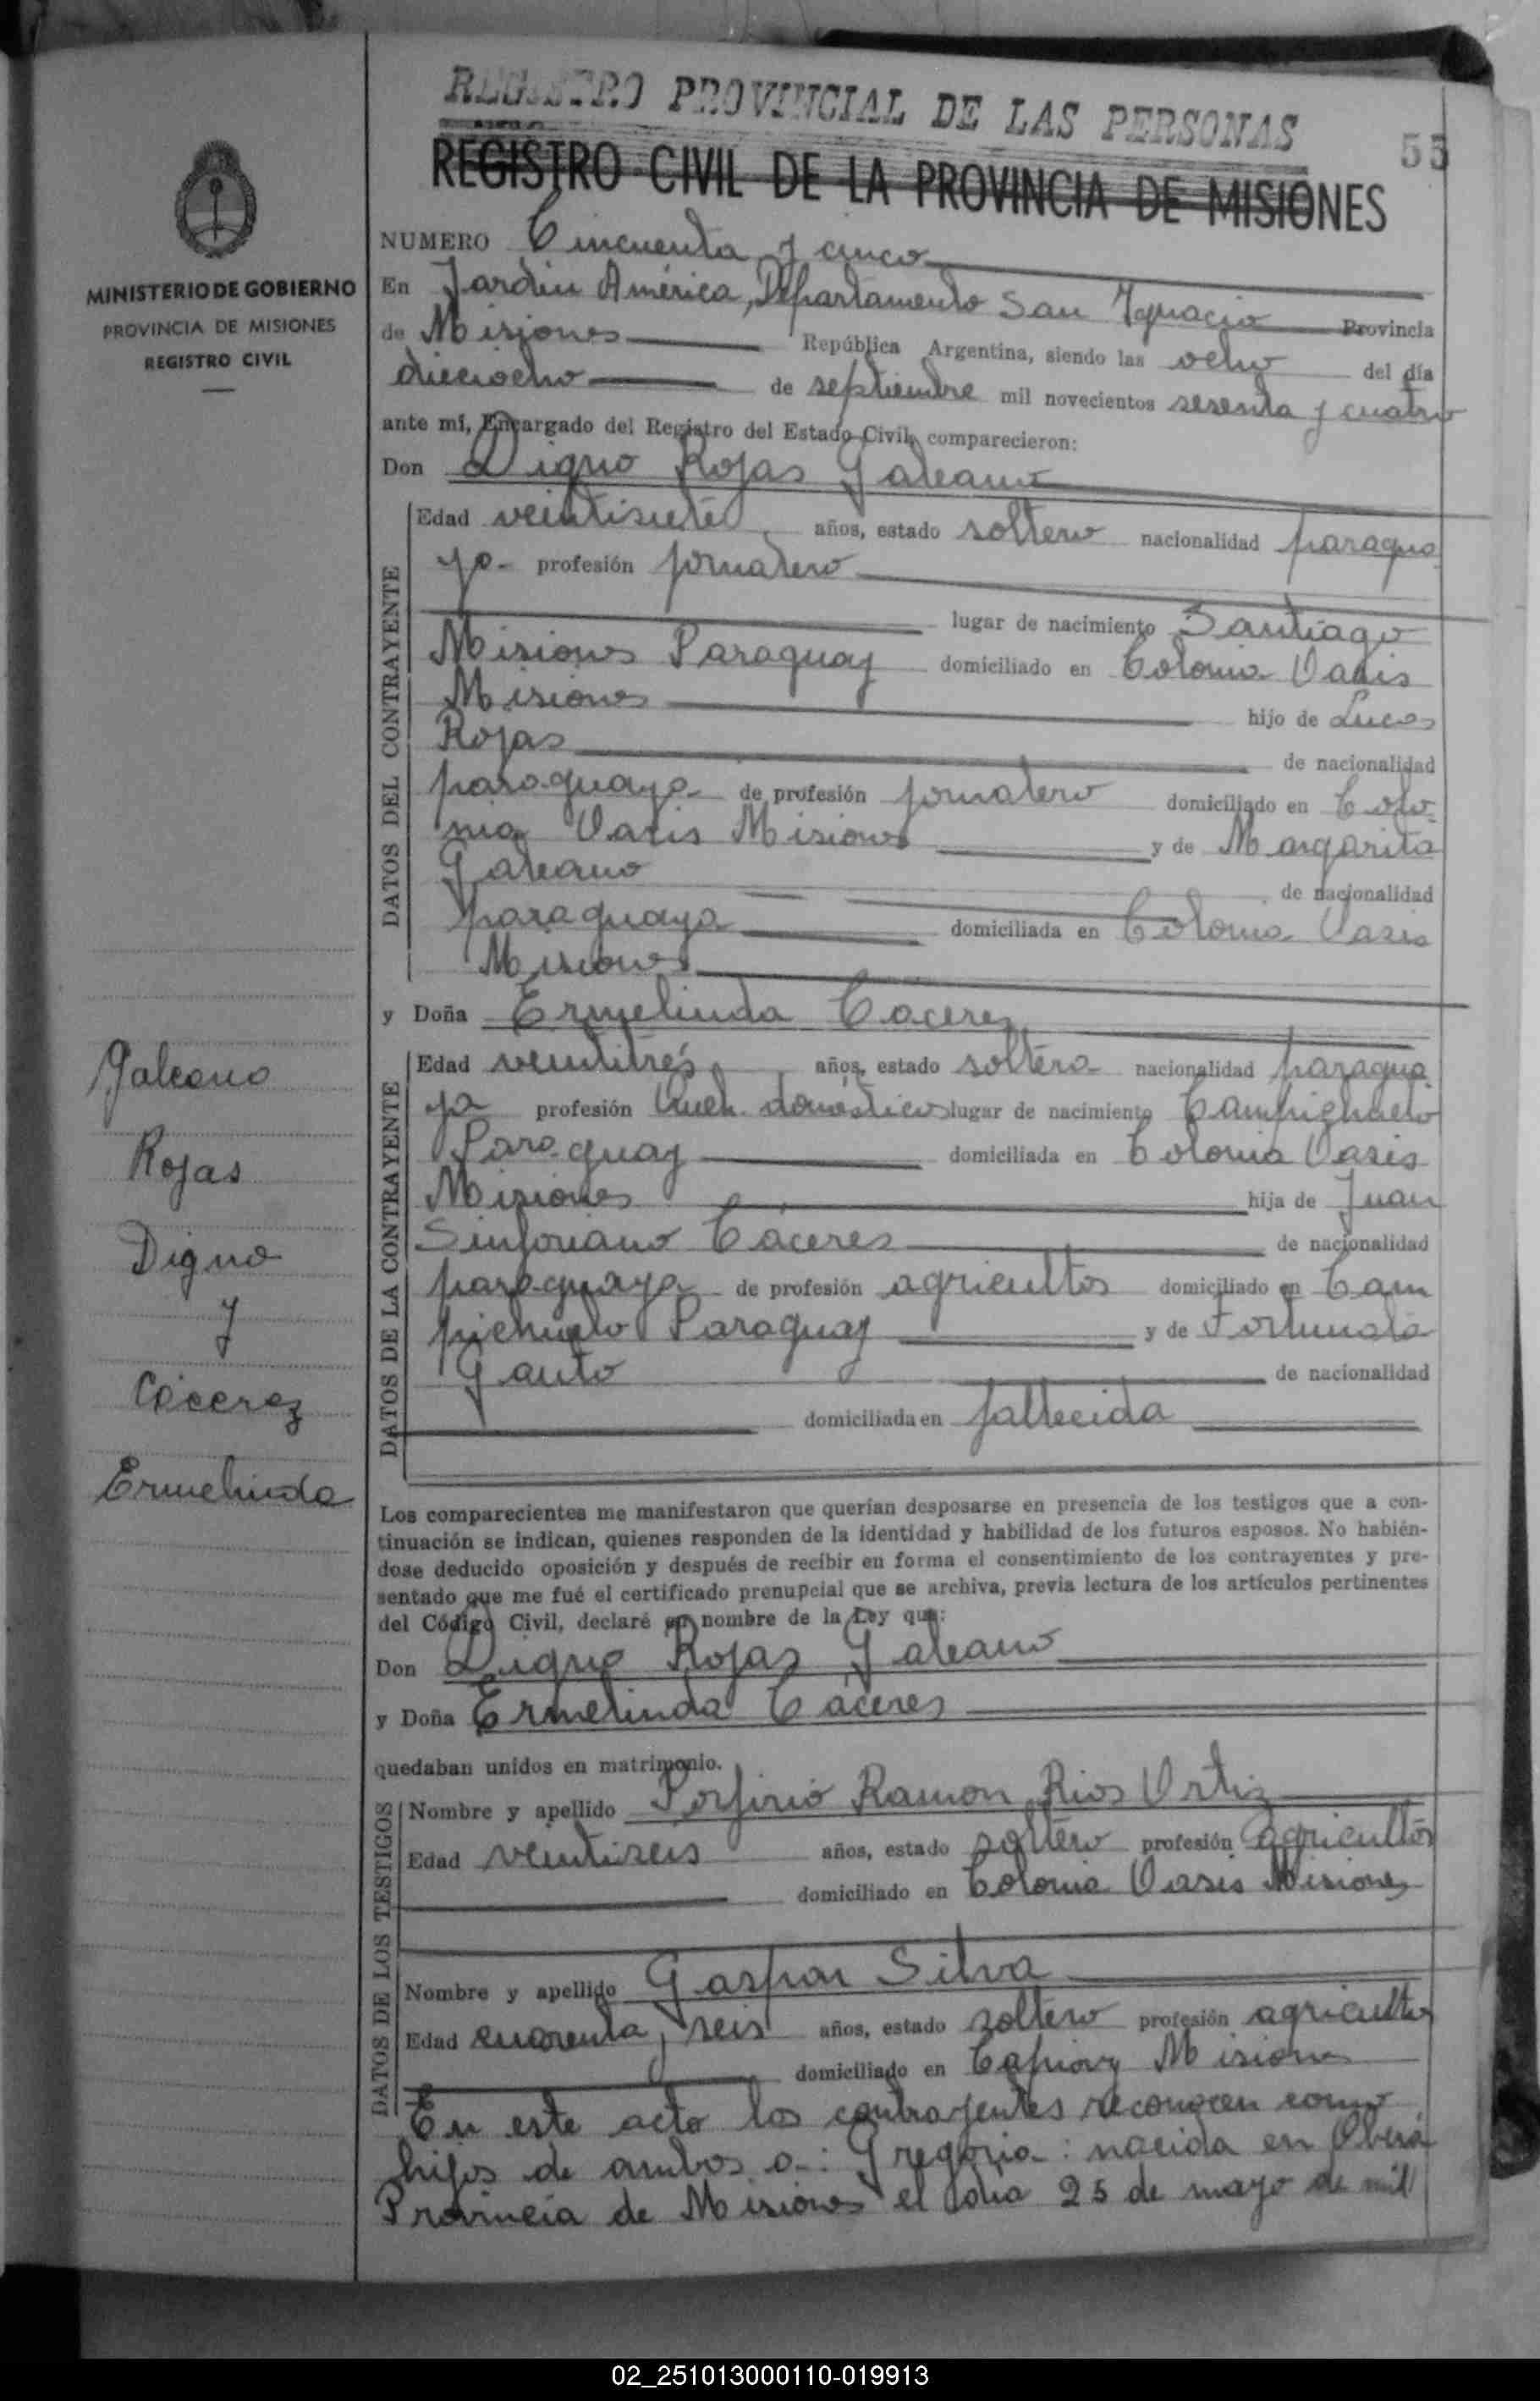 REGISTRO PROVINCIAL DE LAS PERSONAS
55
REGISTRO CIVIL DE LA PROVINCIA DE MISIONES
MINISTERIO DE GOBIERNO
PROVINCIA DE MISIONES
REGISTRO CIVIL
Galeano
Rojas
Digno
y
Cácerez
Ermelinda
NUMERO Cincuenta y cinco
En Jardín América, Departamento San Ignacio Provincia
de Misiones República Argentina, siendo las ocho del día
dieciocho de septiembre mil novecientos sesenta y cuatro
ante mí, Encargado del Registro del Estado Civil, comparecieron:
Don Digno Rojas Galeano
DATOS DEL CONTRAYENTE
Edad veintisiete años, estado soltero nacionalidad paragua
ya profesión jornalero
lugar de nacimiento Santiago
Misiones Paraguay domiciliado en Colonia Oasis
Misiones hijo de Lucas
Rojas de nacionalidad
paraguaya de profesión jornalero domiciliado en Colo-
nia Oasis Misiones y de Margarita
Galeano de nacionalidad
paraguaya domiciliada en Colonia Oasis
Misiones
y Doña Ermelinda Cáceres
DATOS DE LA CONTRAYENTE
Edad veintitrés años, estado soltera nacionalidad paragua
ya profesión Queh. domésticos lugar de nacimiento Campichuelo
Paraguay domiciliada en Colonia Oasis
Misiones hija de Juan
Sinforiano Cáceres de nacionalidad
paraguaya de profesión agricultor domiciliado en Cam
pichuelo Paraguay y de Fortunata
Gauto de nacionalidad
domiciliada en fallecida
Los comparecientes me manifestaron que querían desposarse en presencia de los testigos que a con-
tinuación se indican, quienes responden de la identidad y habilidad de los futuros esposos. No habién-
dose deducido oposición y después de recibir en forma el consentimiento de los contrayentes y pre-
sentado que me fué el certificado prenupcial que se archiva, previa lectura de los artículos pertinentes
del Código Civil, declaré en nombre de la Ley que:
Don Digno Rojas Galeano
y Doña Ermelinda Cáceres
quedaban unidos en matrimonio.
DATOS DE LOS TESTIGOS
Nombre y apellido Porfirio Ramon Rios Ortiz
Edad veintiseis años, estado soltero profesión agricultor
domiciliado en Colonia Oasis Misiones
Nombre y apellido Gaspar Silva
Edad cuarenta y seis años, estado soltero profesión agricultor
domiciliado en Capiovy Misiones
En este acto los contrayentes reconocen como
hijos de ambos a: Gregoria: nacida en Oberá
Provincia de Misiones el día 25 de mayo de mil
02_251013000110-019913